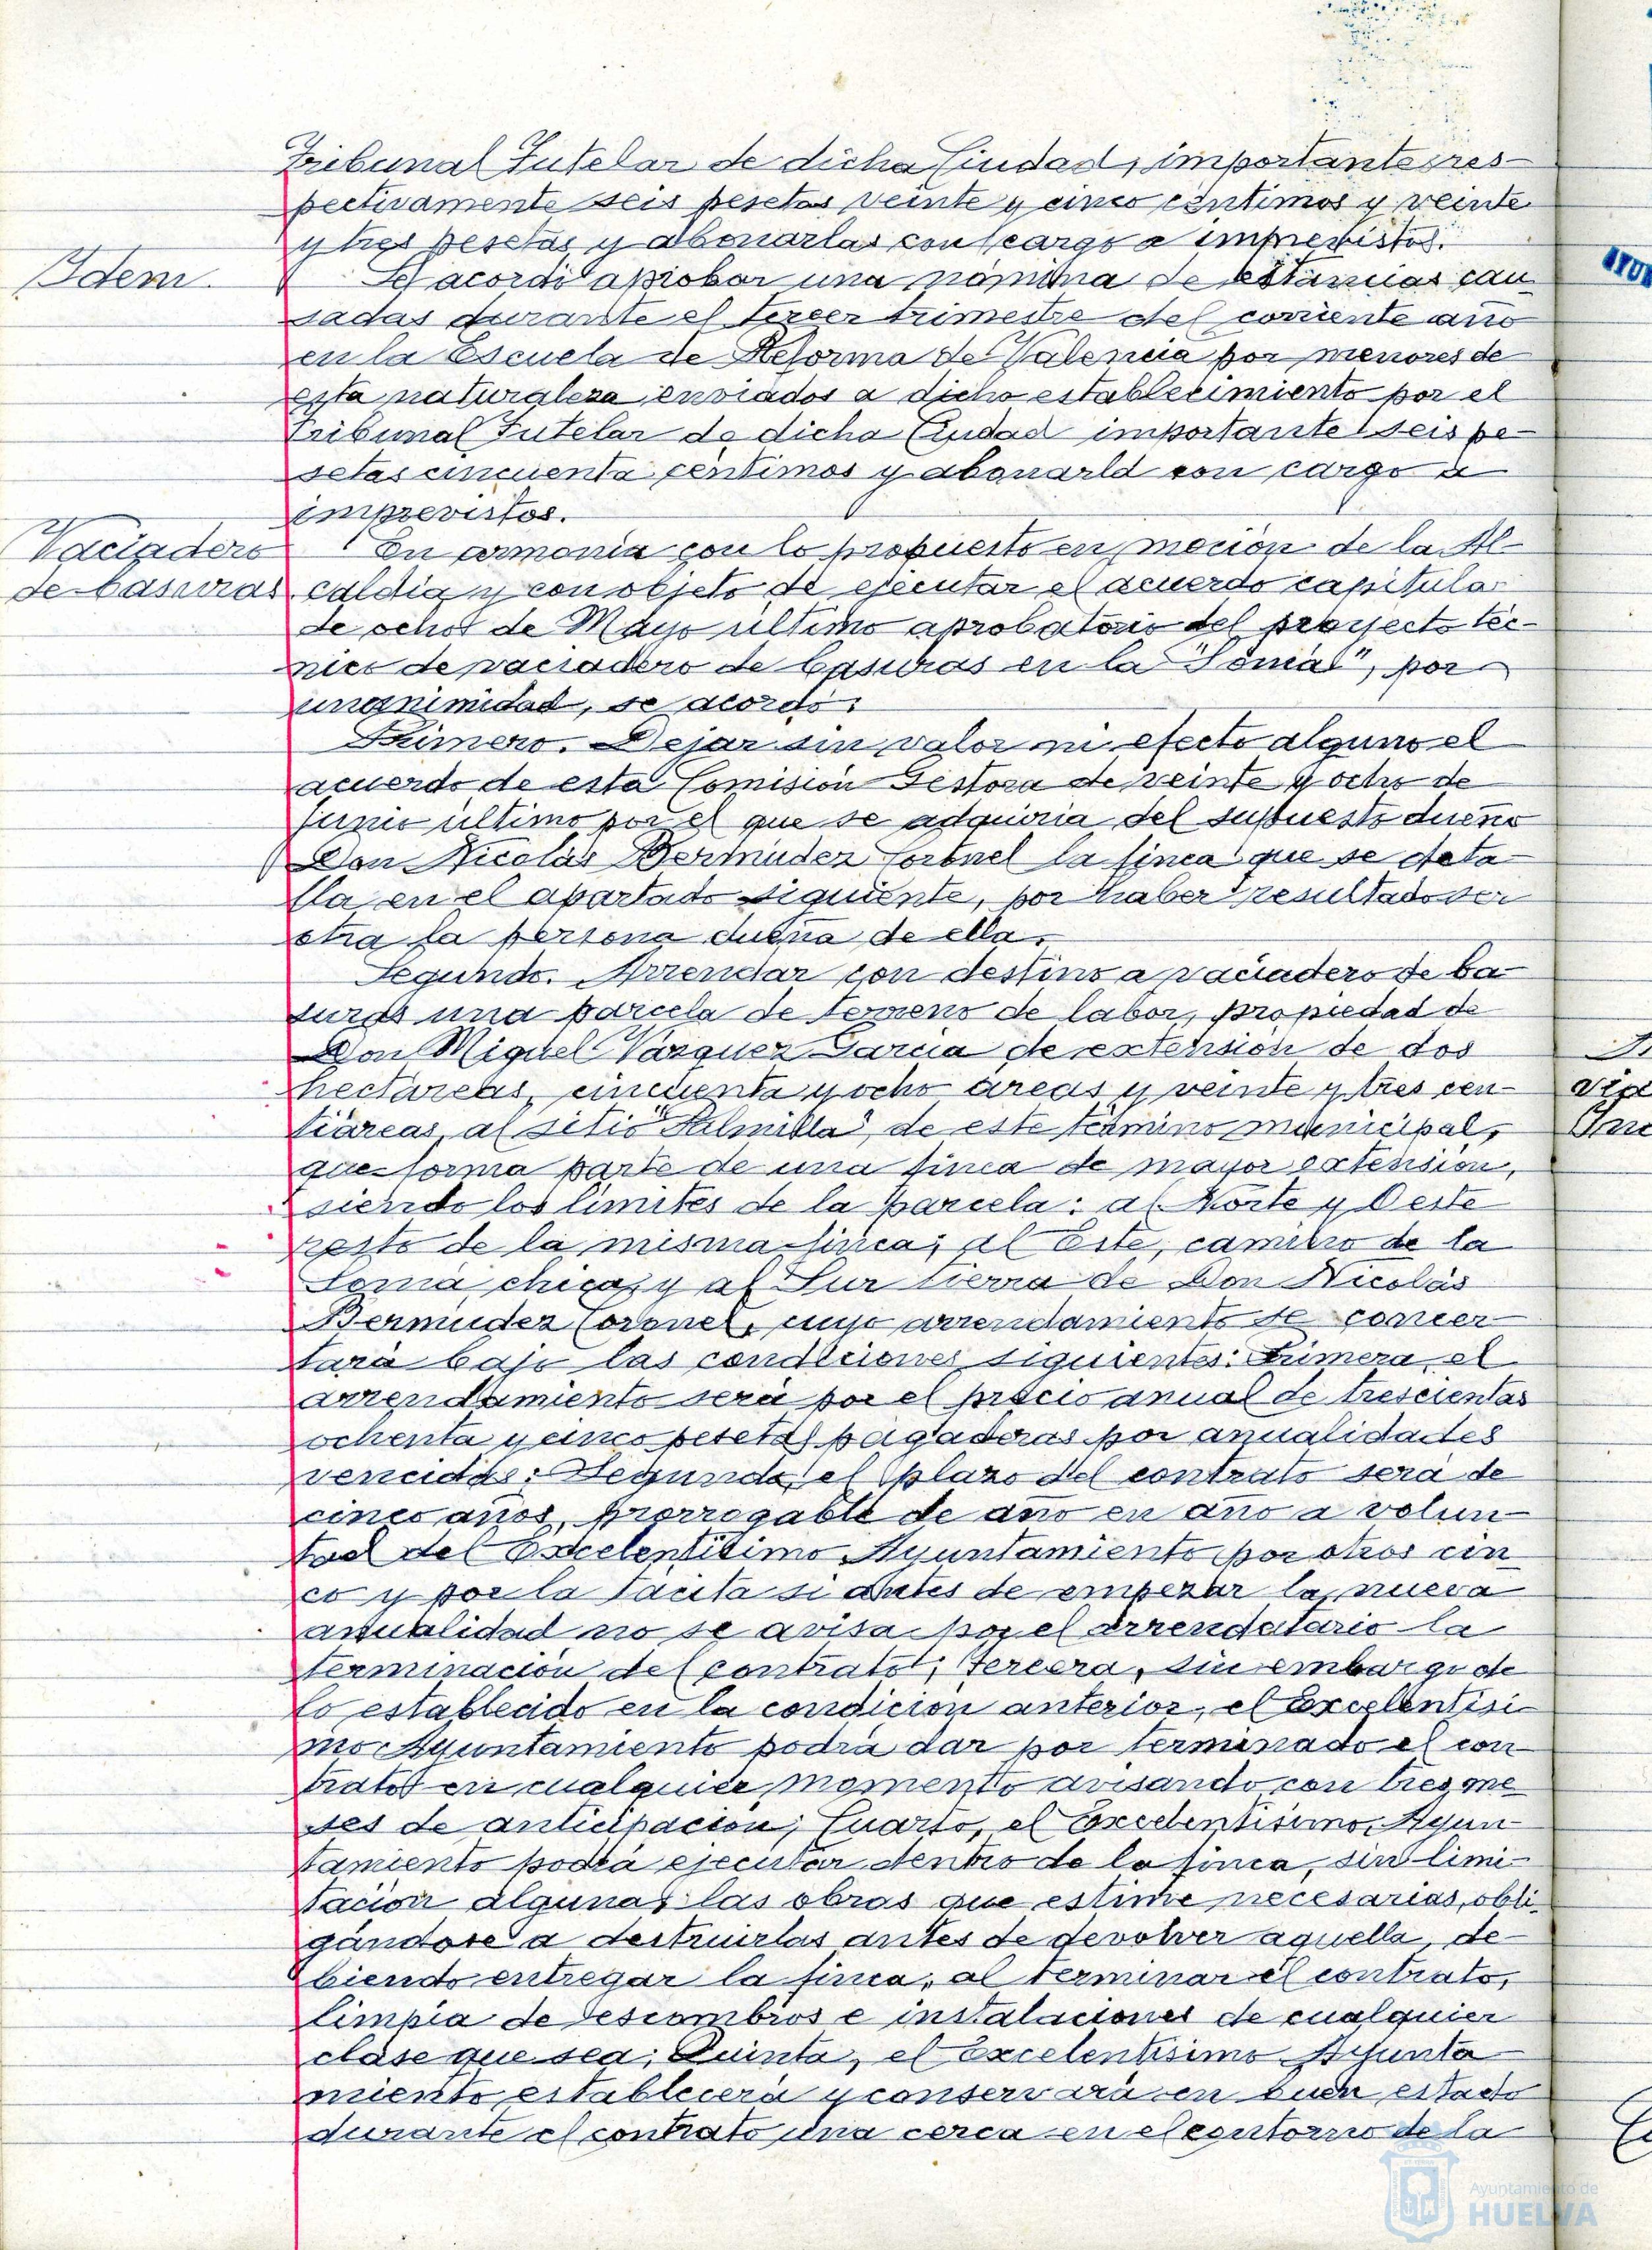 Tribunal Tutelar de dicha Ciudad, importantes res-
pectivamente seis pesetas veinte y cinco céntimos y veinte
y tres pesetas y abonarlas con cargo a imprevistos.
Idem.
Se acordó aprobar una nómina de estancias cau-
sadas durante el tercer trimestre del corriente año
en la Escuela de Reforma de Valencia por menores de
esta naturaleza enviados a dicho establecimiento por el
Tribunal Tutelar de dicha Ciudad importante seis pe-
setas cincuenta céntimos y abonarla con cargo a
imprevistos.
Vaciadero
de basuras
En armonía con lo propuesto en moción de la Al-
caldía y con objeto de ejecutar el acuerdo capitular
de ocho de Mayo último aprobatorio del proyecto téc-
nico de vaciadero de basuras en la "Joma", por
unanimidad, se acordó:
Primero. Dejar sin valor ni efecto alguno el
acuerdo de esta Comisión Gestora de veinte y ocho de
junio último por el que se adquiría del supuesto dueño
Don Nicolás Bermúdez Coronel la finca que se deta-
lla en el apartado siguiente, por haber resultado ser
otra la persona dueña de ella.
Segundo. Arrendar con destino a vaciadero de ba-
suras una parcela de terreno de labor, propiedad de
Don Miguel Vázquez García de extensión de dos
hectáreas, cincuenta y ocho áreas y veinte y tres cen-
tiáreas, al sitio "Palmilla", de este término municipal,
que forma parte de una finca de mayor extensión,
siendo los límites de la parcela: al Norte y Oeste
resto de la misma finca; al Este, camino de la
Joma chica, y al Sur tierra de Don Nicolás
Bermúdez Coronel, cuyo arrendamiento se concer-
tará bajo las condiciones siguientes: Primera, el
arrendamiento será por el precio anual de trescientas
ochenta y cinco pesetas pagaderas por anualidades
vencidas: Segunda, el plazo del contrato será de
cinco años, prorrogable de año en año a volun-
tad del Excelentísimo Ayuntamiento por otros cin-
co y por la tácita si antes de empezar la nueva
anualidad no se avisa por el arrendatario la
terminación del contrato; Tercera, sin embargo de
lo establecido en la condición anterior, el Excelentísi-
mo Ayuntamiento podrá dar por terminado el con-
trato en cualquier momento avisando con tres me-
ses de anticipación; Cuarto, el Excelentísimo Ayun-
tamiento podrá ejecutar dentro de la finca, sin limi-
tación alguna, las obras que estime necesarias, obli-
gándose a destruirlas antes de devolver aquella, de-
biendo entregar la finca, al terminar el contrato,
limpia de descombros e instalaciones de cualquier
clase que sea; Quinta, el Excelentísimo Ayunta-
miento establecerá y conservará en buen estado
durante el contrato una cerca en el contorno de la
Ayuntamiento de
HUELVA